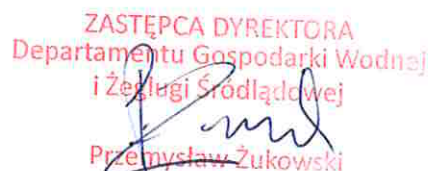 ZASTĘPCA DYREKTORA
Departamentu Gospodarki Wodnej
i Żeglugi Śródlądowej
Przemysław Żukowski